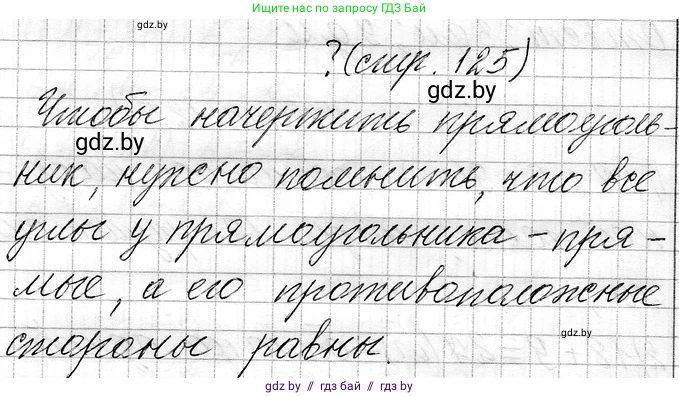 Ищите нас по запросу ГДЗ Бай
gdz.by
?(стр. 125)
gdz.by
Чтобы начертить прямоуголь-
gdz.by
ник, нужно помнить, что все
углы у прямоугольника - пря-
мые, а его противоположные
gdz.by
стороны равны.
gdz.by // гдз бай // gdz.by